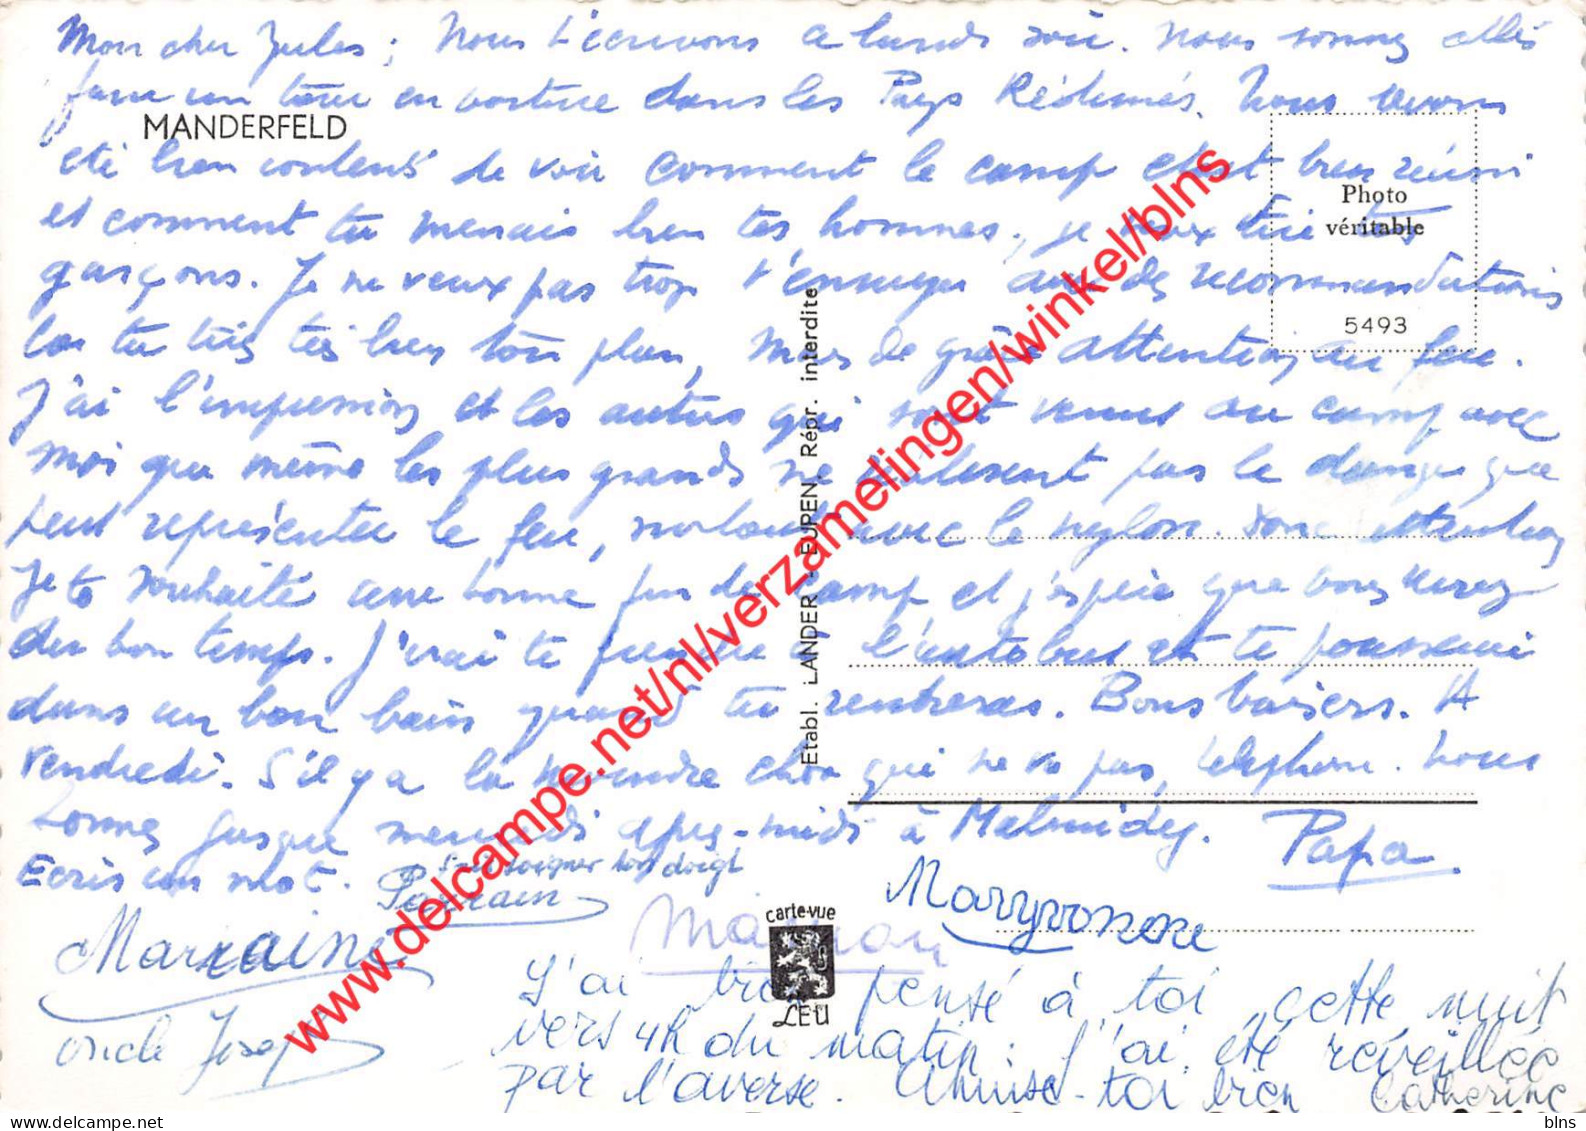 Mon cher Jules; Nous t'écrivons ce lundi soir. Nous sommes allés
faire un tour en voiture dans les Pays Rédimés. Nous avons
MANDERFELD
été bien contents de voir comment le camp était bien réussi
Photo
véritable
5493
et comment tu menais bien tes hommes, je veux dire tes
garçons. Je ne veux pas trop t'ennuyer avec des recommandations
car tu tires très bien ton plan, mais de grâce attention au feu.
J'ai l'impression et les autres qui sont venus au camp avec
moi que même les plus grands ne réalisent pas le danger que
peut représenter le feu, surtout avec le nylon. Donc attention
Je te souhaite une bonne fin de camp et j'espère que vous aurez
du bon temps. J'irai te prendre à l'autobus et te pousserai
dans un bon bain quand tu rentreras. Bons baisers. A
vendredi. S'il y a la moindre chose qui ne va pas, téléphone. Nous
sommes jusque mercredi après-midi à Malmédy.
Ecris un mot. Papa
soigner ton doigt
Parrain
Maryvonne
Marraine
Maman
oncle Joseph
Etabl. LANDER - EUPEN. Répr. interdite
carte-vue
LEU
J'ai bien pensé à toi cette nuit
vers 4h du matin: j'ai été réveillée
par l'averse. Amuse-toi bien Catherine
www.delcampe.net/nl/verzamelingen/winkel/blns
blns